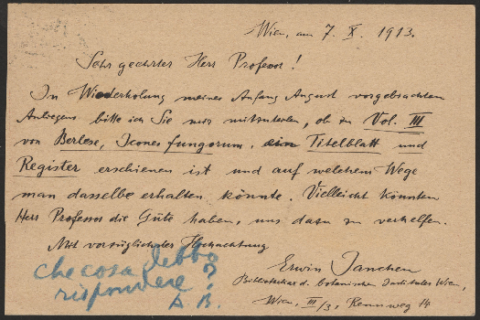 Wien, am 7. X. 1913.
Sehr geehrter Herr Professor!
In Wiederholung meines Anfang August vorgebrachten
Anliegens bitte ich Sie mir mitzuteilen, ob zu Vol. III
von Berlese, Icones fungorum, ein Titelblatt und
Register erschienen ist und auf welchem Wege
man dasselbe erhalten könnte. Vielleicht könnten
Herr Professor die Güte haben, uns dazu zu verhelfen.
Mit vorzüglicher Hochachtung
Erwin Janchen
Bibliothekar d. botanischen Institutes Wien,
Wien, III/3, Rennweg 14
che cosa debbo
rispondere?
A B.